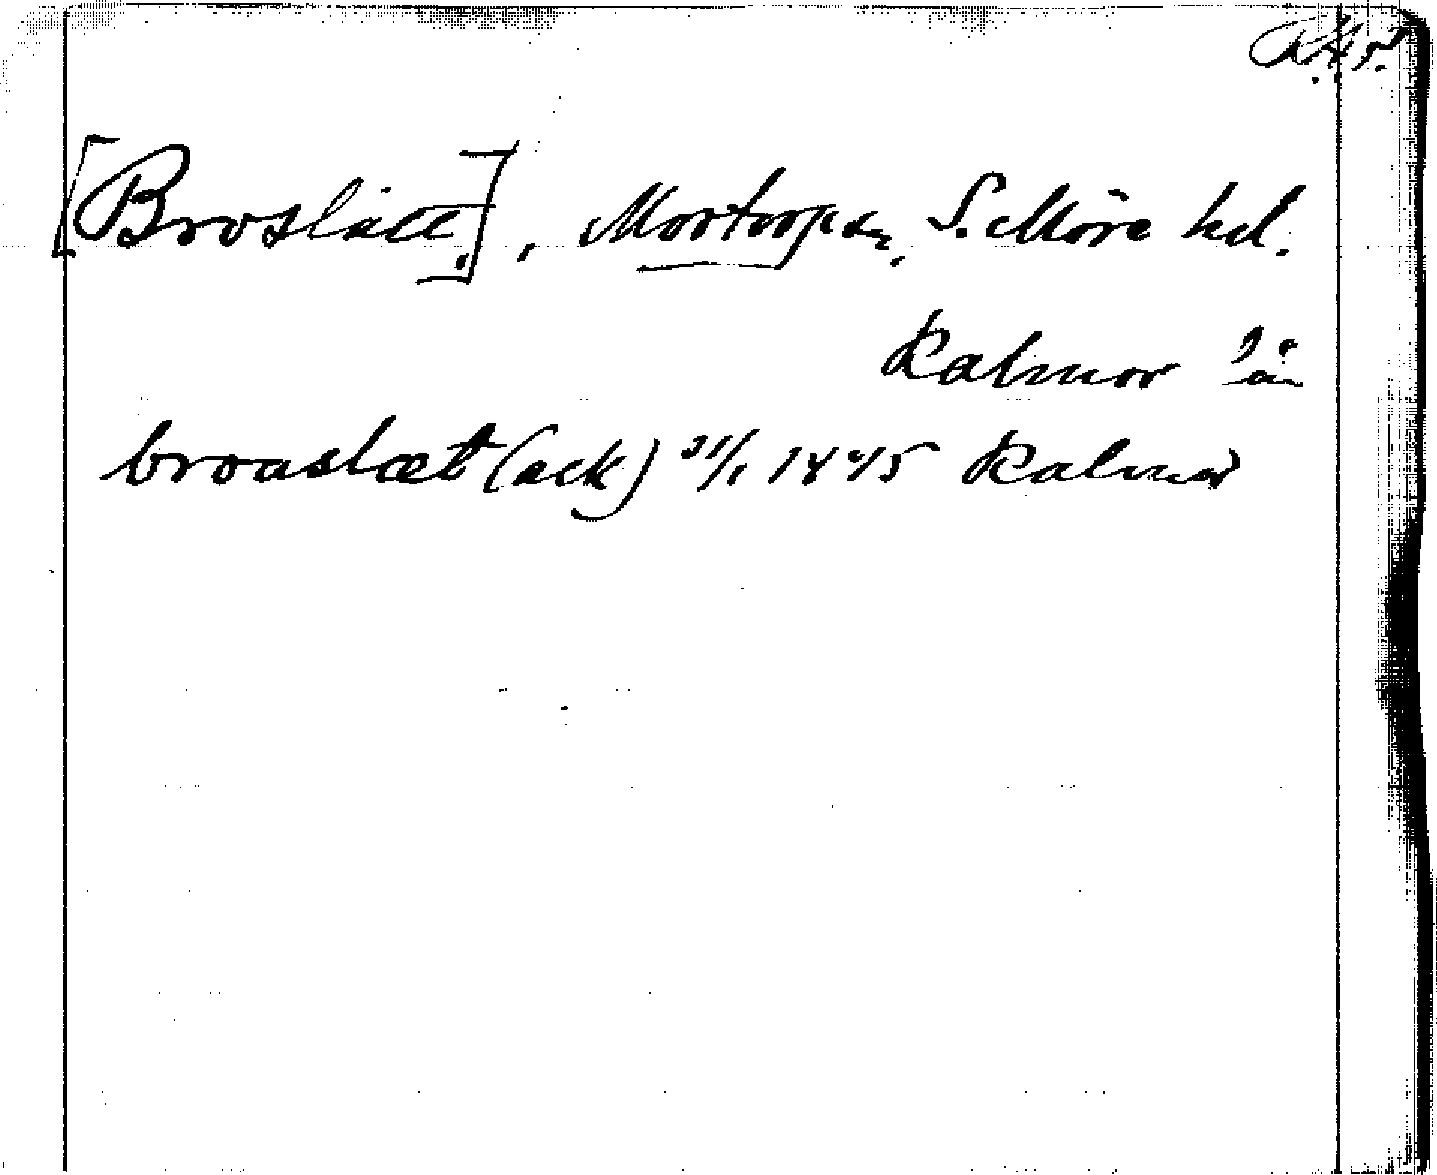 [Broslätt.], Mortorp sn, S. Möre hd.
Kalmar län
broaslæt (ack) 31/1 1445 Kalmar